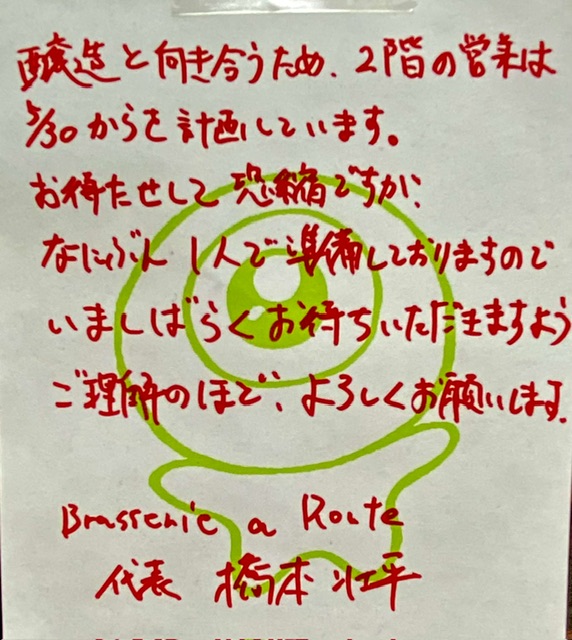 醸造と向き合うため、2階の営業は
5/30からを計画しています。
お待たせして恐縮ですが、
なにぶん1人で準備しておりますので
いましばらくお待ちいただきますよう
ご理解のほど、よろしくお願いします。
Brasserie a Route
代表 橋本 壮平